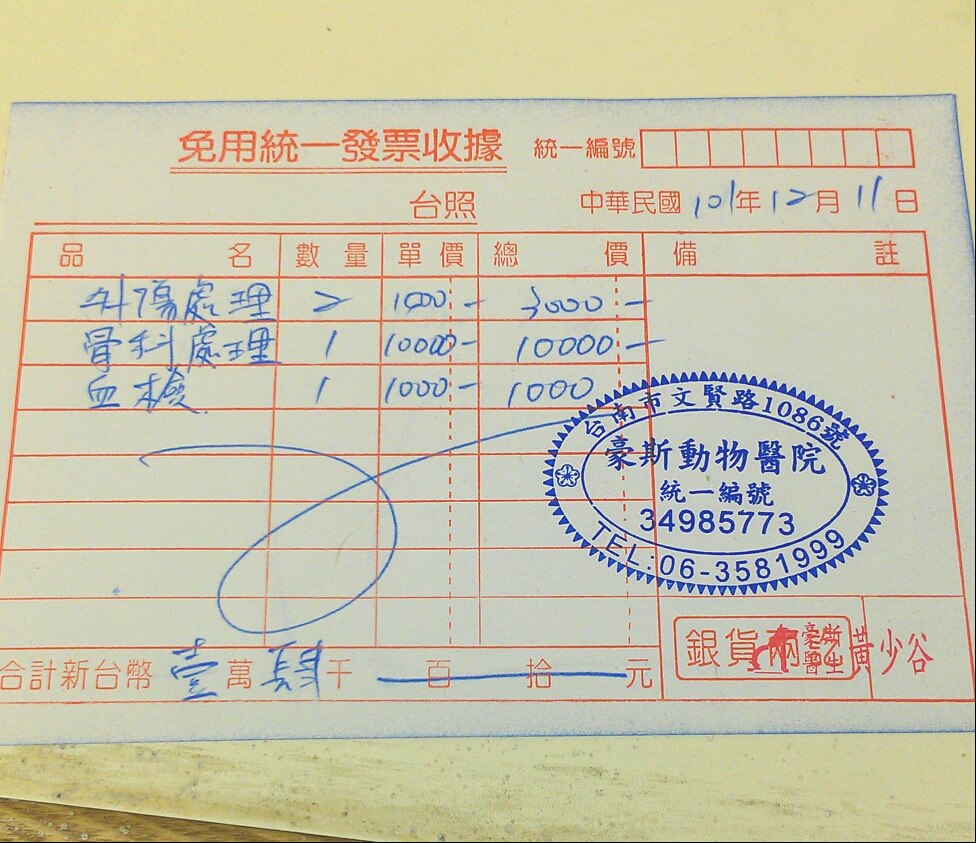 免用統一發票收據 統一編號
台照 中華民國 101年12月11日
品名 數量 單價 總價 備註
外傷處理 2 1500- 3000-
骨科處理 1 10000- 10000-
血檢 1 1000- 1000
台南市文賢路1086號
豪斯動物醫院
統一編號
34985773
TEL:06-3581999
合計新台幣 壹萬肆千 百 拾 元
銀貨兩訖 豪斯醫生 黃少谷